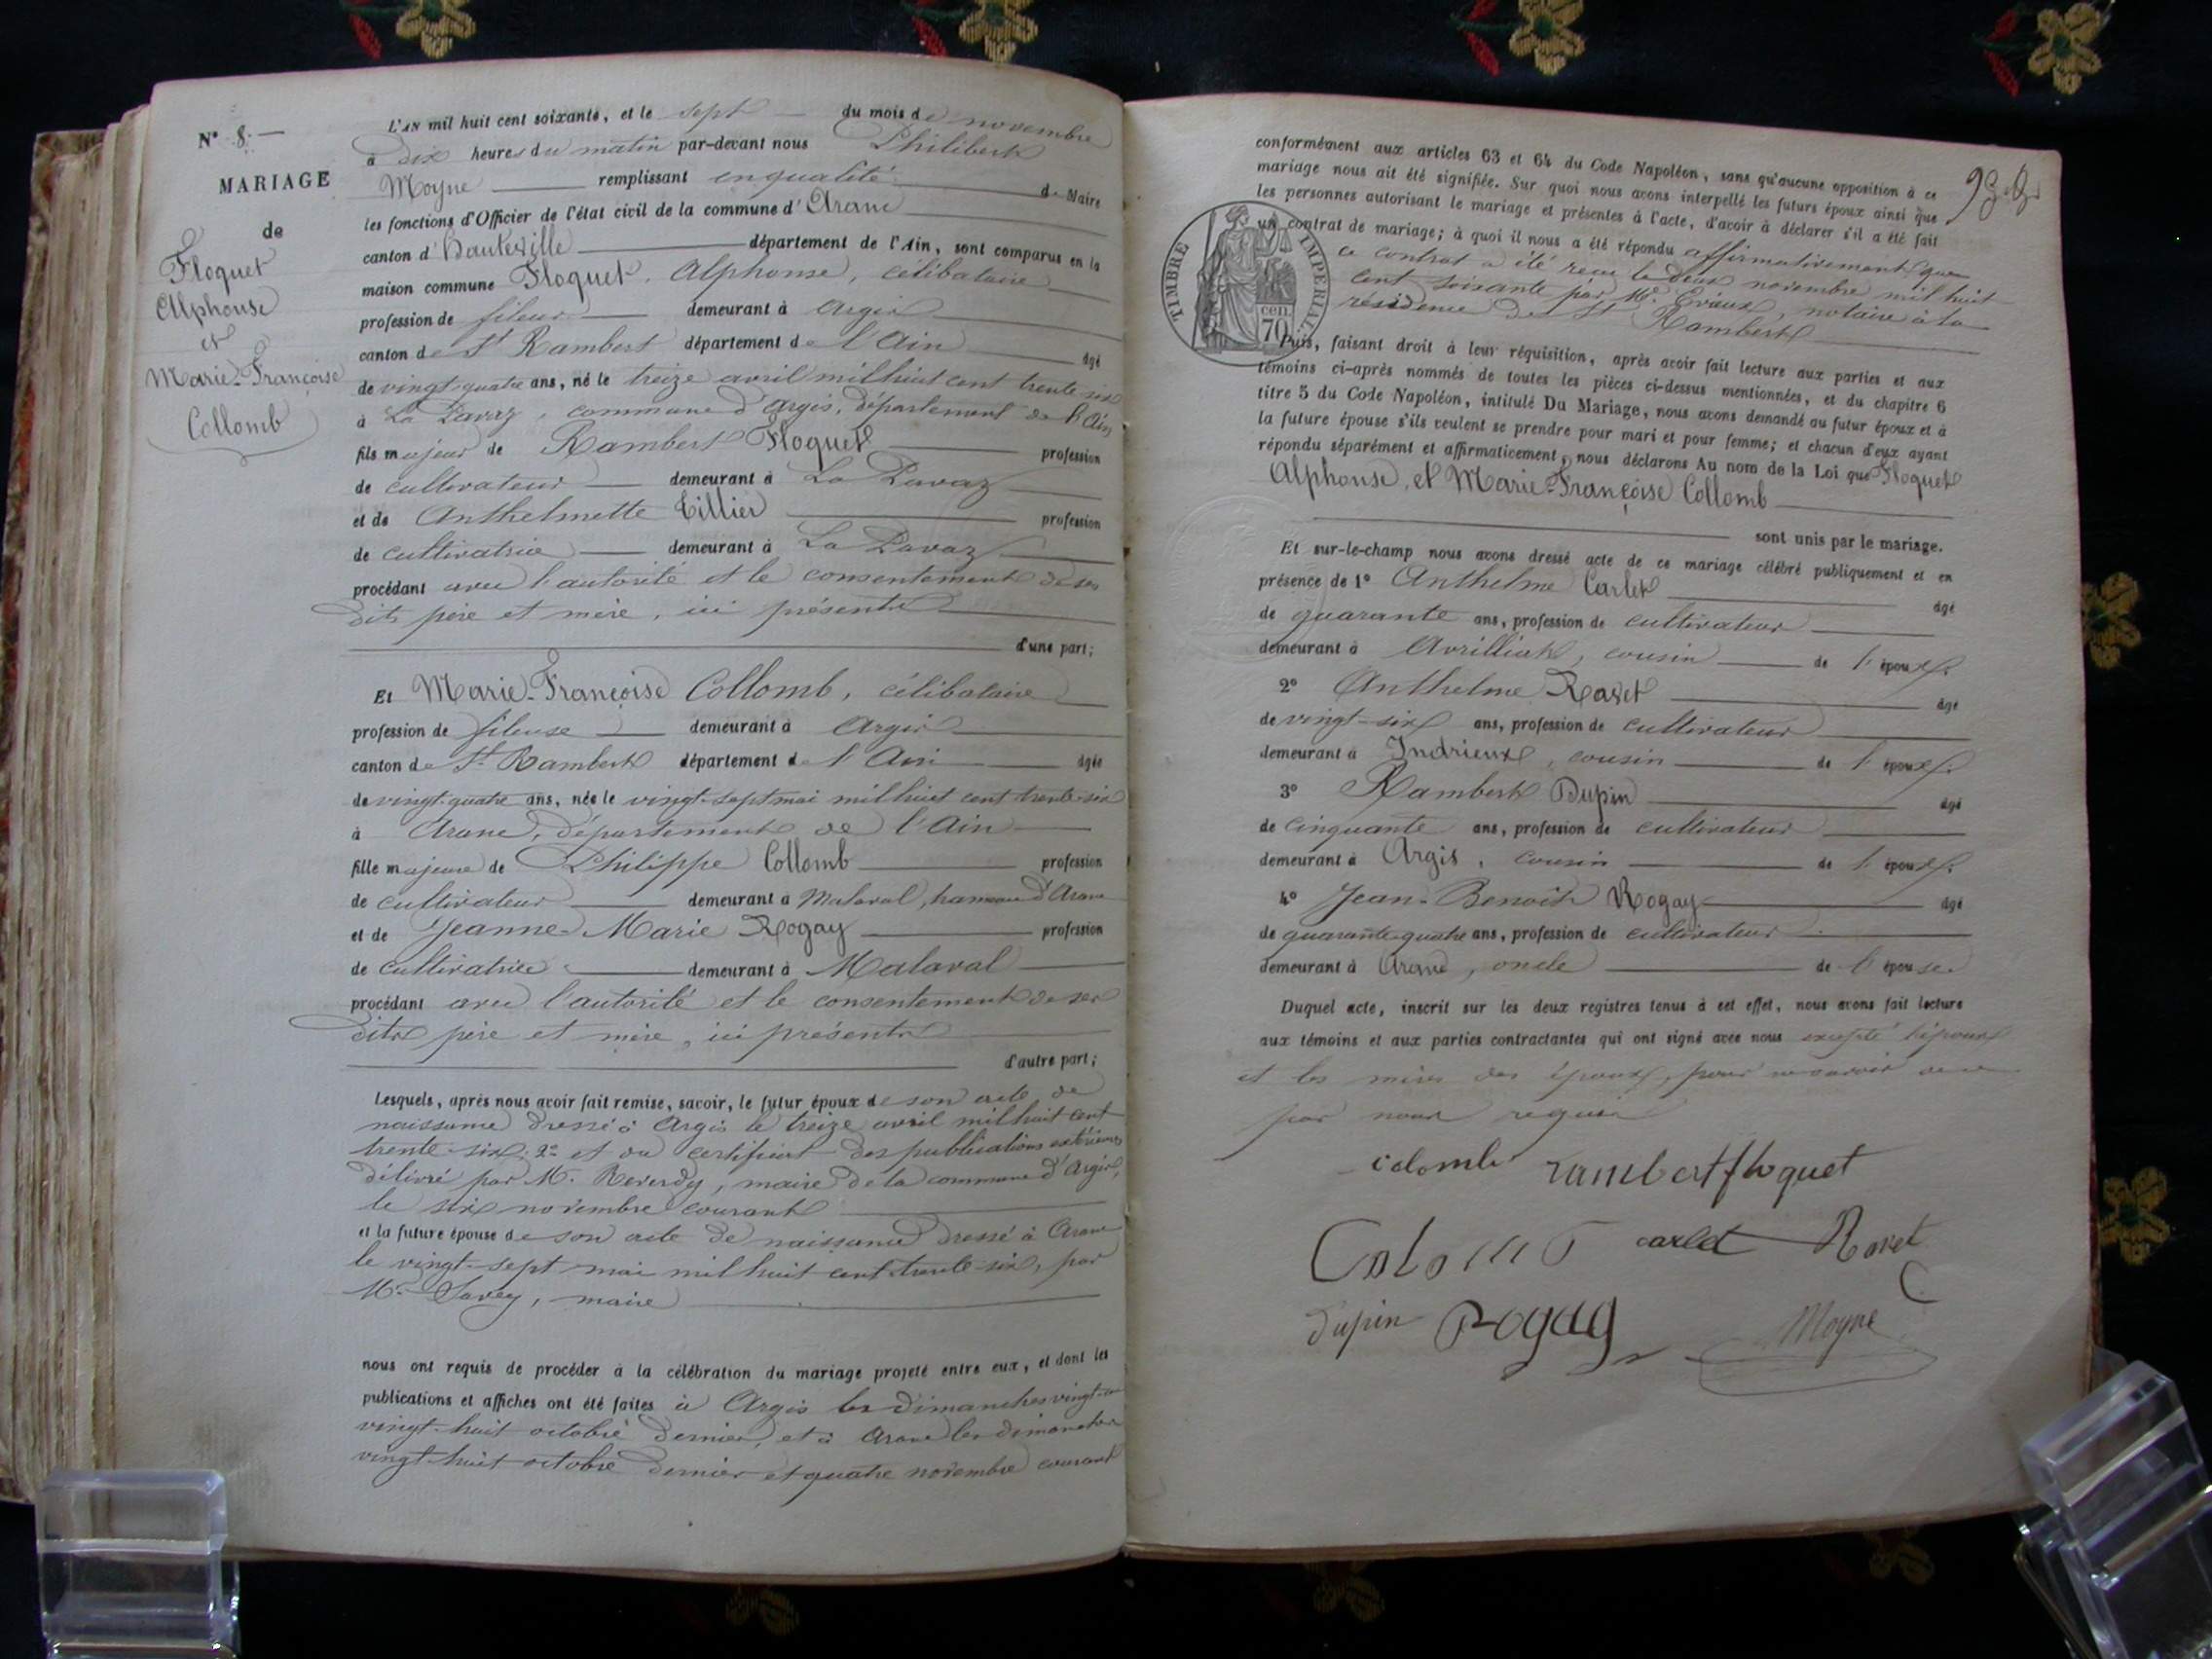 N° 8.
MARIAGE
de
Floquet
Alphonse
et
Marie-Françoise
Collomb
L'AN mil huit cent soixante, et le sept du mois de novembre
à dix heures du matin par-devant nous Philibert
Moyne remplissant en qualité de Maire
les fonctions d'Officier de l'état civil de la commune d'Arane
canton d'Hauteville département de l'Ain, sont comparus en la
maison commune Floquet, Alphonse, célibataire
profession de fileur demeurant à Argis
canton de St Rambert département de l'Ain âgé
de vingt-quatre ans, né le treize avril mil huit cent trente-six
à La Pavaz, commune d'Argis, département de l'Ain
fils majeur de Rambert Floquet profession
de cultivateur demeurant à La Pavaz
et de Anthelmette Tillier profession
de cultivatrice demeurant à La Pavaz
procédant avec l'autorité et le consentement de ses
dits père et mère, ici présents
d'une part;
Et Marie-Françoise Collomb, célibataire
profession de fileuse demeurant à Argis
canton de St Rambert département de l'Ain âgée
de vingt-quatre ans, née le vingt-sept mai mil huit cent trente-six
à Arane, département de l'Ain
fille majeure de Philippe Collomb profession
de cultivateur demeurant à Malaval, hameau d'Arane
et de Jeanne-Marie Rogay profession
de cultivatrice demeurant à Malaval
procédant avec l'autorité et le consentement de ses
dits père et mère, ici présents
d'autre part;
Lesquels, après nous avoir fait remise, savoir, le futur époux de son acte de
naissance dressé à Argis le treize avril mil huit cent
trente-six, 2° et du certificat des publications extérieures
délivré par M. Reverdy, maire de la commune d'Argis,
le six novembre courant
et la future épouse de son acte de naissance dressé à Arane
le vingt-sept mai mil huit cent trente-six, par
Mr Savey, maire
nous ont requis de procéder à la célébration du mariage projeté entre eux, et dont les
publications et affiches ont été faites à Argis les dimanches vingt-un
vingt-huit octobre dernier, et à Arane les dimanches
vingt-huit octobre dernier et quatre novembre courant
conformément aux articles 63 et 64 du Code Napoléon, sans qu'aucune opposition à ce
mariage nous ait été signifiée. Sur quoi nous avons interpellé les futurs époux ainsi que
les personnes autorisant le mariage et présentes à l'acte, d'avoir à déclarer s'il a été fait
un contrat de mariage; à quoi il nous a été répondu affirmativement que
ce contrat a été reçu le deux novembre mil huit
cent soixante par Me notaire à la
résidence de St Rambert
TIMBRE IMPERIAL
70 cen.
Puis, faisant droit à leur réquisition, après avoir fait lecture aux parties et aux
témoins ci-après nommés de toutes les pièces ci-dessus mentionnées, et du chapitre 6
titre 5 du Code Napoléon, intitulé Du Mariage, nous avons demandé au futur époux et à
la future épouse s'ils veulent se prendre pour mari et pour femme; et chacun d'eux ayant
répondu séparément et affirmativement, nous déclarons Au nom de la Loi que Floquet
Alphonse, et Marie-Françoise Collomb
sont unis par le mariage.
Et sur-le-champ nous avons dressé acte de ce mariage célébré publiquement et en
présence de 1° Anthelme Carlet âgé
de quarante ans, profession de cultivateur
demeurant à Avrilliat, cousin de l'époux.
2° Anthelme Ravet âgé
de vingt-six ans, profession de cultivateur
demeurant à Indrieux, cousin de l'époux.
3° Rambert Dupin âgé
de cinquante ans, profession de cultivateur
demeurant à Argis, cousin de l'époux.
4° Jean-Benoît Rogay âgé
de quarante-quatre ans, profession de cultivateur
demeurant à Arane, oncle de l'épouse.
Duquel acte, inscrit sur les deux registres tenus à cet effet, nous avons fait lecture
aux témoins et aux parties contractantes qui ont signé avec nous excepté l'époux
et les mères des époux, pour ne savoir de ce
par nous requis
colomb rambert floquet
Colomb carlet Ravet
dupin Rogay Moyne